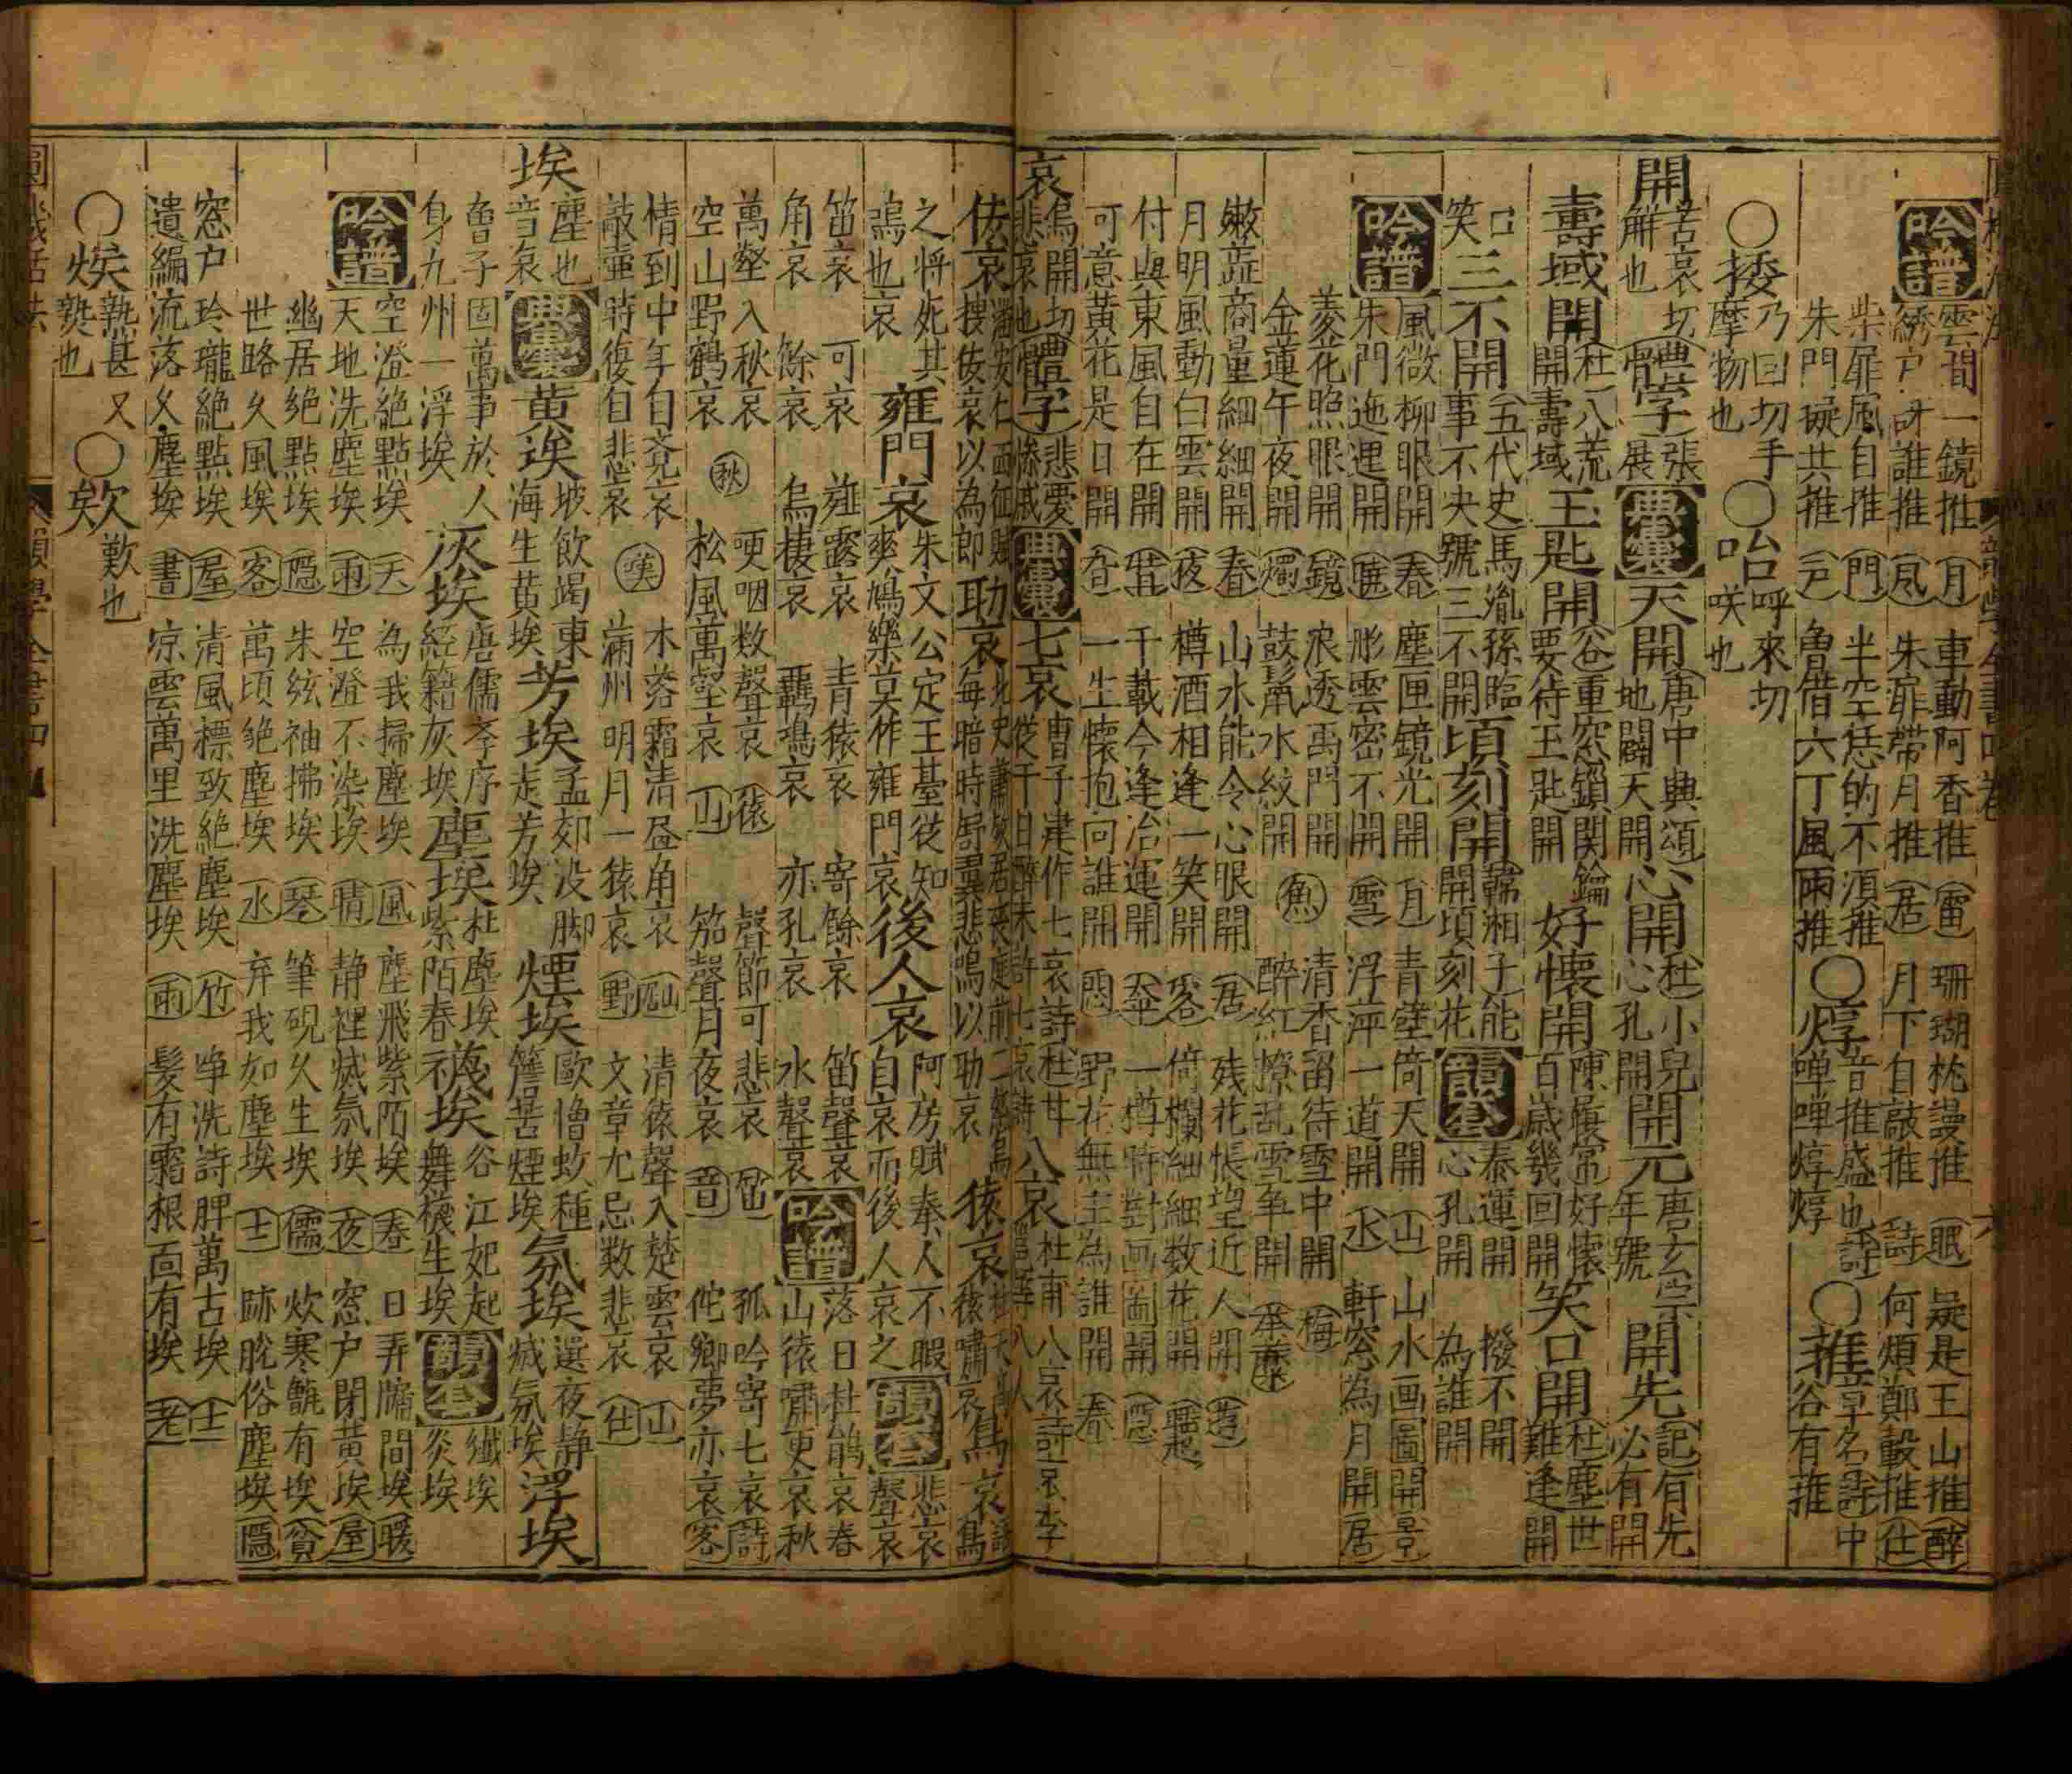 吟譜
雲間一鏡推 月 車動阿香推 雷 珊瑚枕謾推 眠 疑是玉山推 醉
綉户 誰推 風 朱扉帶月推 居 月下自敲推 詩 何煩鄭轂推 仕
柴扉風自推 門 半空恁的不須推
朱門擬共推 戸 魯借六丁風雨推
○焞 音推盛也詩嘽嘽焞焞
○蓷 草名詩中谷有蓷
○捼 乃回切手摩物也
○咍 呼來切咲也
開 苦哀切解也
體字 張 展
典囊
天開 唐中興頌地闢天開
心開 杜小兒心孔開
開元 唐玄宗年號
開先 記有先必有開
壽域開 杜八荒開壽域
玉匙開 谷重窓鎖関鑰要待玉匙開
好懷開 陳履常好懷百歲幾回開
笑口開 杜塵世難逢開口笑
三不開 五代史馬胤孫臨事不决號三不開
頃刻開 韓湘子能開頃刻花
韻釜
泰運開 心孔開 撥不開 為誰開
吟譜
風微柳眼開 春 塵匣鏡光開 月 青壁倚天開 山 山水画圖開 景
朱門迤邐開 曉 彤雲密不開 雪 浮萍一道開 水 軒窓為月開 居
菱花照眼開 鏡 浪透禹門開 魚 清香留待雪中開 梅
金蓮午夜開 燭 鼓鬣水紋開 醉紅撩乱雪争開 荼蘼
嫩蕋商量細細開 春 山水能令心眼開 居 残花悵望近人開
月明風動白雲開 夜 樽酒相逢一笑開 客 倚欄細細数花開
付與東風自在開 千載今逢治運開 一樽時對画圖開 隱
可意黄花是日開 一生懷抱向誰開 悶 野花無主為誰開 春
哀 烏開切悲哀也
體字 悲憂 慘戚
典囊
七哀 曹子建作七哀詩
八哀 杜甫八哀詩哀李
侫哀
助哀
猿哀 猿嘯哀
鳥哀 鳥之将死其鳴也哀
雍門哀 朱文公定王臺從知爽鳩樂莫作雍門哀
後人哀 阿房賦秦人不暇自哀而後人哀之
韻釜
悲哀 聲哀 笛哀 角哀 可哀 餘哀 薤露哀 烏棲哀 青猿哀 羈鴻哀 寄餘哀 亦孔哀 笛聲哀 水聲哀
吟譜
落日杜鵑哀 春 山猿嘯更哀 秋
萬壑入秋哀 秋 哽咽数聲哀 猿 聲節可悲哀 笛 孤吟寄七哀 詩
空山野鶴哀 松風萬壑哀 山 笳聲月夜哀 音 佗鄉夢亦哀 客
情到中年自莞哀 嘆 木落霜清晝角哀 清猿聲入楚雲哀 山
敲壷時復自悲哀 滿州明月一猿哀 野 文章尤忌数悲哀 仕
埃 塵也音哀
典囊
黄埃 坡飲渴東海生黄埃
芳埃 孟郊没脚走芳埃
煙埃 歐憎蚊種簷苦煙埃
氛埃 選夜静滅氛埃
浮埃 魯子固萬事於人身九州一浮埃
灰埃 唐儒學序經籍灰埃
塵埃 杜塵埃紫陌春
襪埃 谷江妃起舞襪生埃
韻釜
纖埃 炎埃
吟譜
空澄絶點埃 天 為我掃塵埃 風 塵飛紫陌埃 春 日弄牖間埃 暖
天地洗塵埃 雨 空澄不染埃 晴 静裡滅氛埃 夜 窓户閉黄埃 屋
幽居絶點埃 隱 朱絃袖拂埃 琴 筆硯久生埃 儒 炊寒甑有埃 貧
世路久風埃 客 萬頃絶塵埃 水 弃我如塵埃 士 跡脫俗塵埃 隱
窓户玲瓏絶點埃 屋 清風標致絶塵埃 竹 争洗詩脾萬古埃 士
遺編流落久塵埃 書 凉雲萬里洗塵埃 雨 髪有霜根面有埃 老
○㶼 熱甚又熱也
○欸 歎也